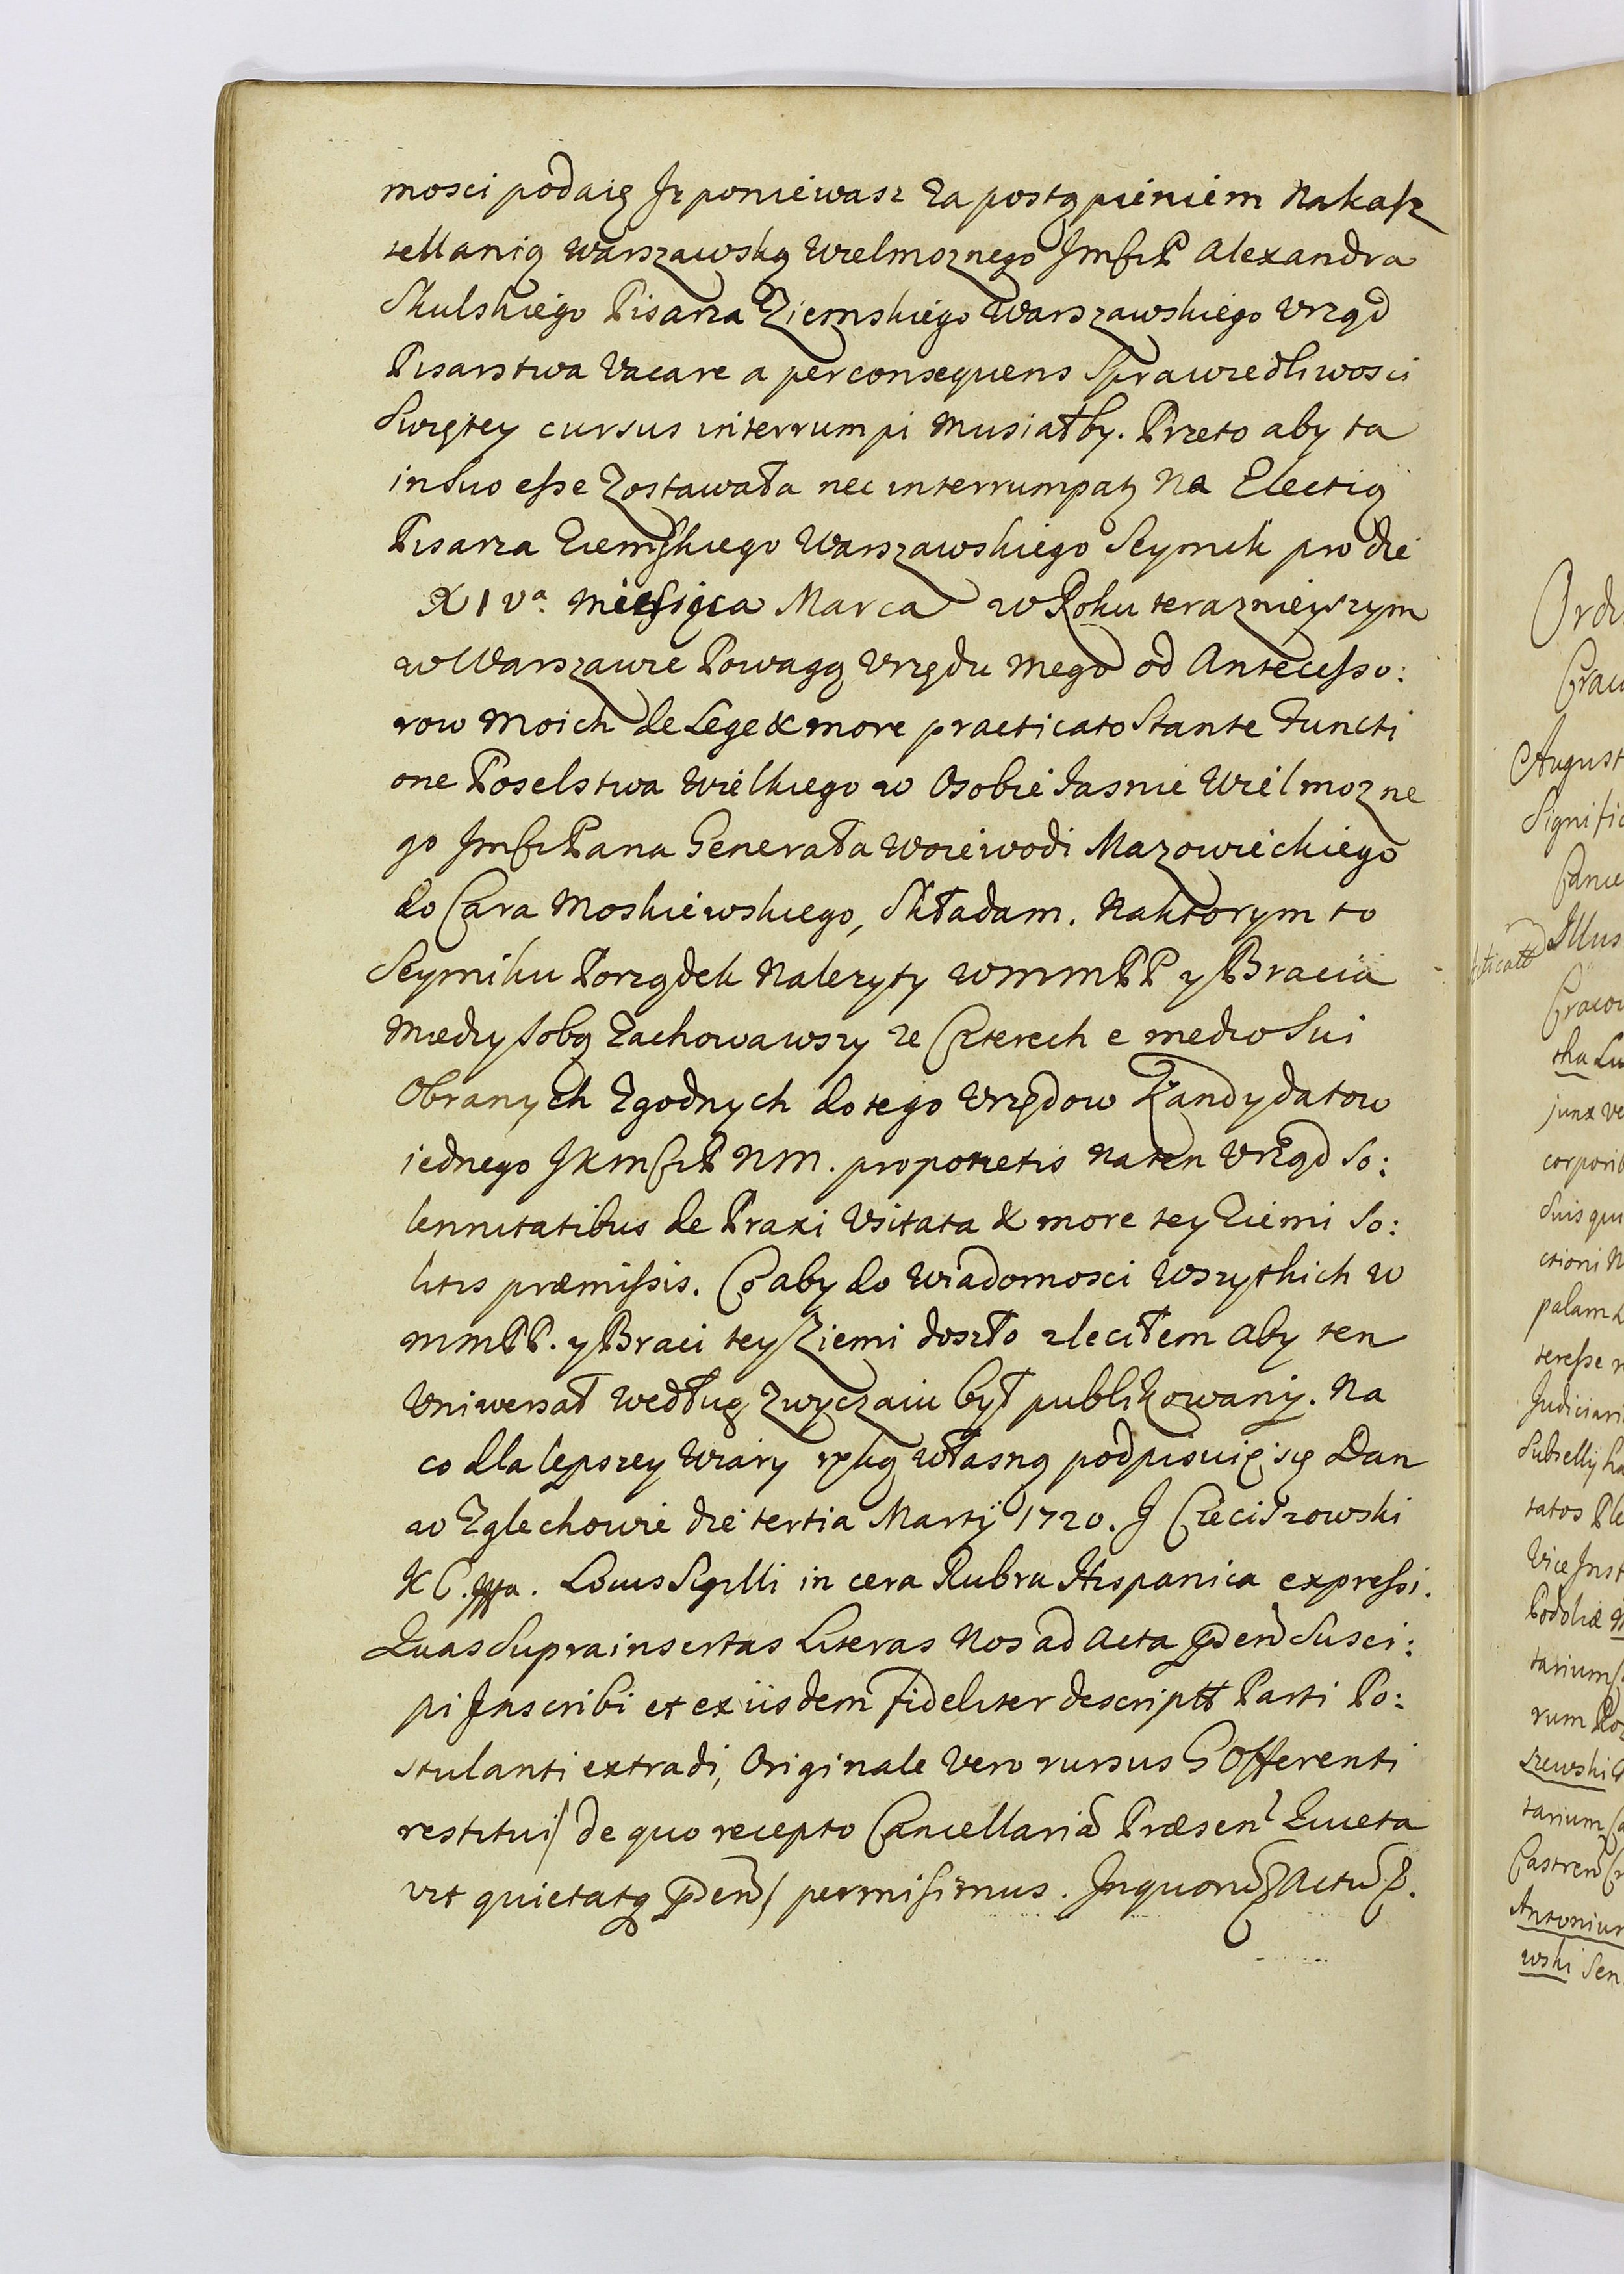 mosci podaię Jz poniewasz za postąpieniem Nakasz
tellanią Warszawską Wielmoznego JmsciP Alexandra
Skulskiego Pisarza Ziemskiego Warszawskiego Vrząd
Pisarstwa Vacare a perconsequens Sprawiedliwosci
Swiętey cursus interrumpi Musiałby. Przeto aby ta
in Suo esse Zostawała nec interrumpatą Na Electią
Pisarza Ziemskiego Warszawskiego Seymik pro die
XIVa Miesiąca Marca w Roku terazniejszym
w Warszawie Powagą Vrzędu Mego od Antecesso:
row Moich de Lege & more practicato Stante Functi
one Poselstwa Wielkiego w Osobie Jasnie Wielmozne
go Jmsci Pana Generała Woiewodi Mazowieckiego
do Cara Moskiewskiego, Składam. Naktorym to
Seymiku Porządek Nalezyty WMMPP y Bracia
Miedzy sobą Zachowawszy ze Czterech e medio Sui
Obranych Zgodnych do tego Vrzędow Kandydatow
iednego JKMsciP NM. proponetis Na ten Vrząd So:
lennitatibus de Praxi Vsitata & more tey Ziemi So:
litis præmissis. Co aby do Wiadomosci Wszytkich W
MMPP. y Braci tey Ziemi doszło zleciłem Aby ten
Vniwersał Według Zwyczaiu był publikowany. Na
co dla lepszey Wiary ręką Własną podpisuię się Dan
w Zglechowie die tertia Martÿ 1720. J Cieciszowski
K C. Locus Sigilli in cera Rubra Hispanica expressi.
Quas Suprainsertas Literas Nos ad Acta Susci:
pi Inscribi et ex iisdem fideliter descriptt Parti Po:
stulanti extradi, Originale Vero rursus Offerenti
restitui / de quo recepto Cancellaria Præsen Quieta
vit quietatq / permisimus. In quoru Actu
Ordi
Craco
August
Signific
Cance
Illus
Cracov
ska Lu
junx ve
corporib
Suis qui
ctioni N
palam
teresse
Judiciari
Subsellÿ
tatos Ple
Vice Inst
Podoliæ
tarium
rum
szewski
tarium
Castren
Antonium
wski Sen